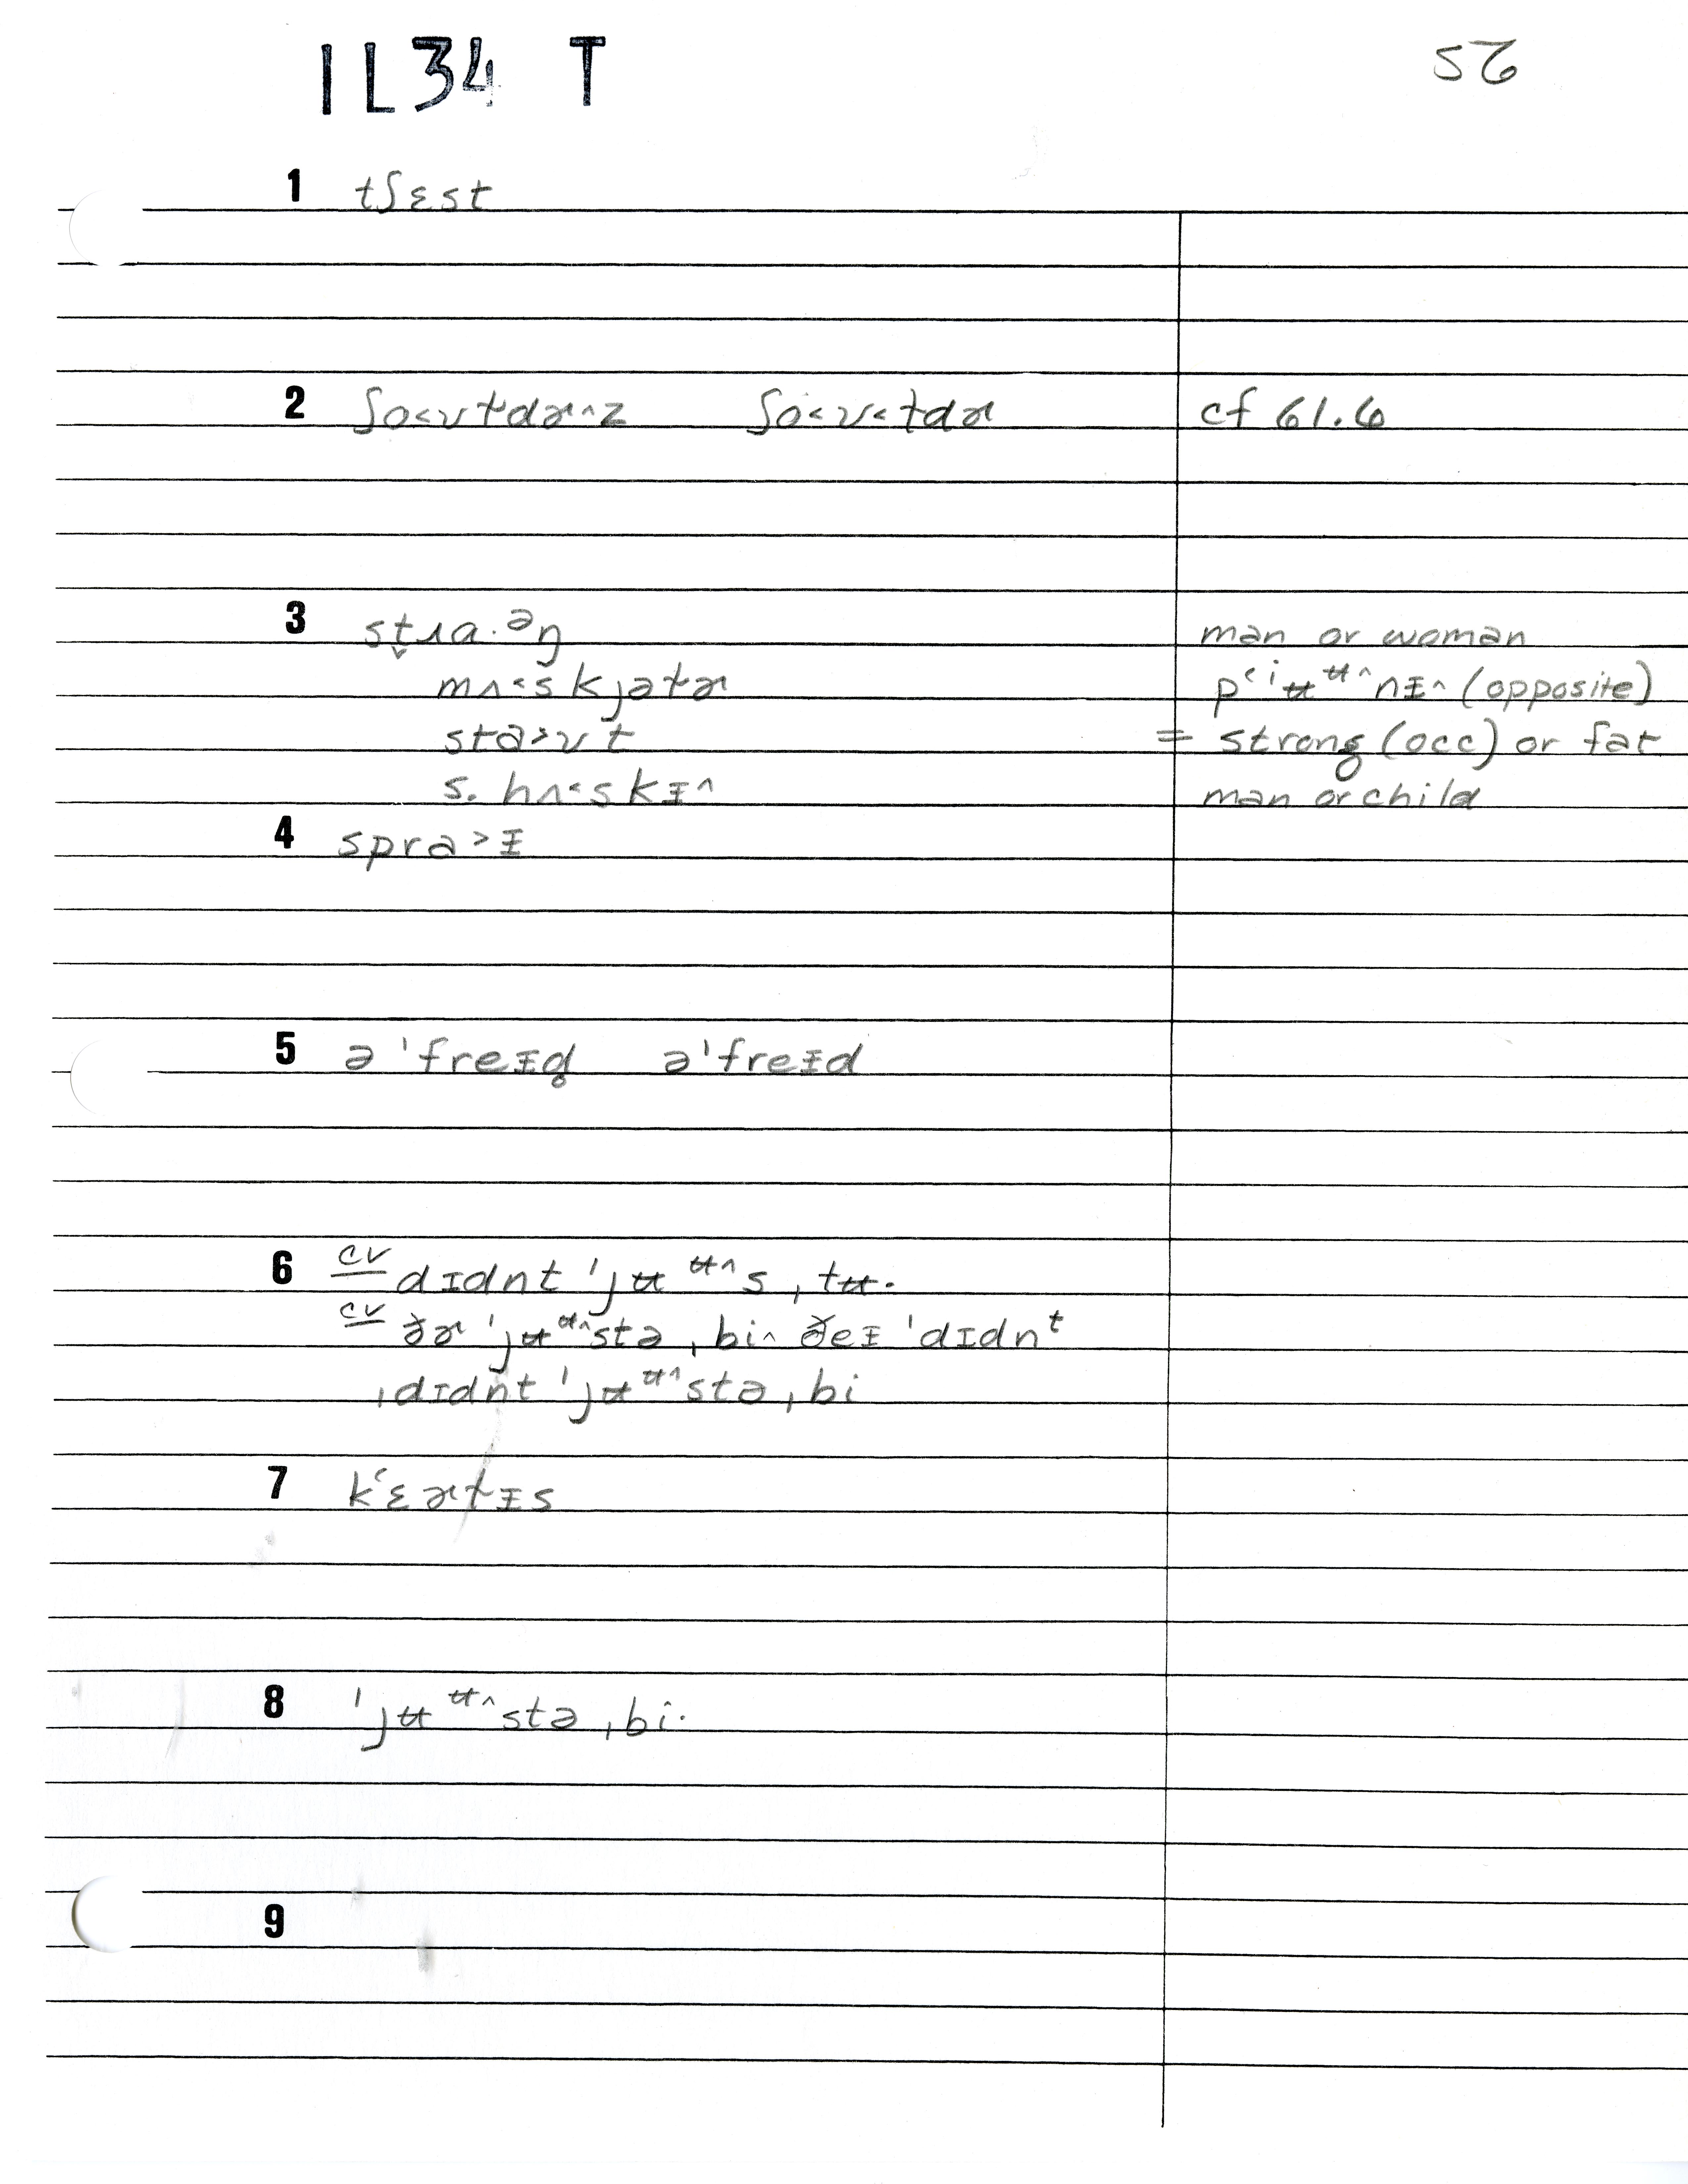 IL34 T
52
1 tʃɛst
2 ʃo<ʊt̬dɚ^z ʃo<ʊ<tdɚ cf 61.6
3 st̬ɹɑ·ᵊŋ man or woman
mʌ<skjətɚ pʻiʉᶶ^nɪ^ (opposite)
stɑ>ʊt = strong (occ) or fat
s. hʌ<skɪ^ man or child
4 sprɑ>ɪ
5 ə'freɪd̥ ə'freɪd
6 cv dɪdnt 'jʉᶶ^s ˌtʉ·
cv ðɚ 'jʉᶶ^stə ˌbi^ ðeɪ 'dɪdnᵗ
ˌdɪdnt 'jʉᶶ^stə ˌbi
7 kʻɛɚtɪs
8 'jʉᶶ^stə ˌbi·
9